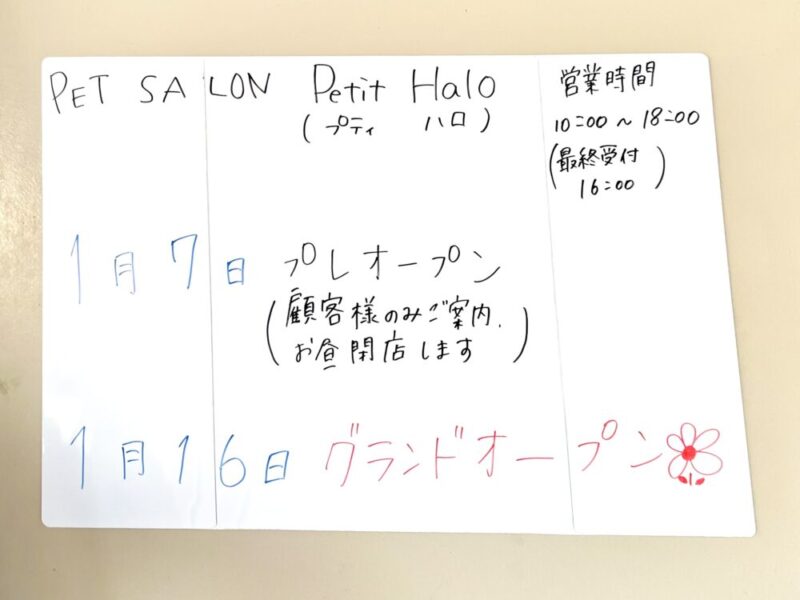 PET SALON Petit Halo
(プティ ハロ)
営業時間
10:00～18:00
(最終受付
16:00)
1月7日 プレオープン
(顧客様のみご案内.
お昼閉店します)
1月16日 グランドオープン